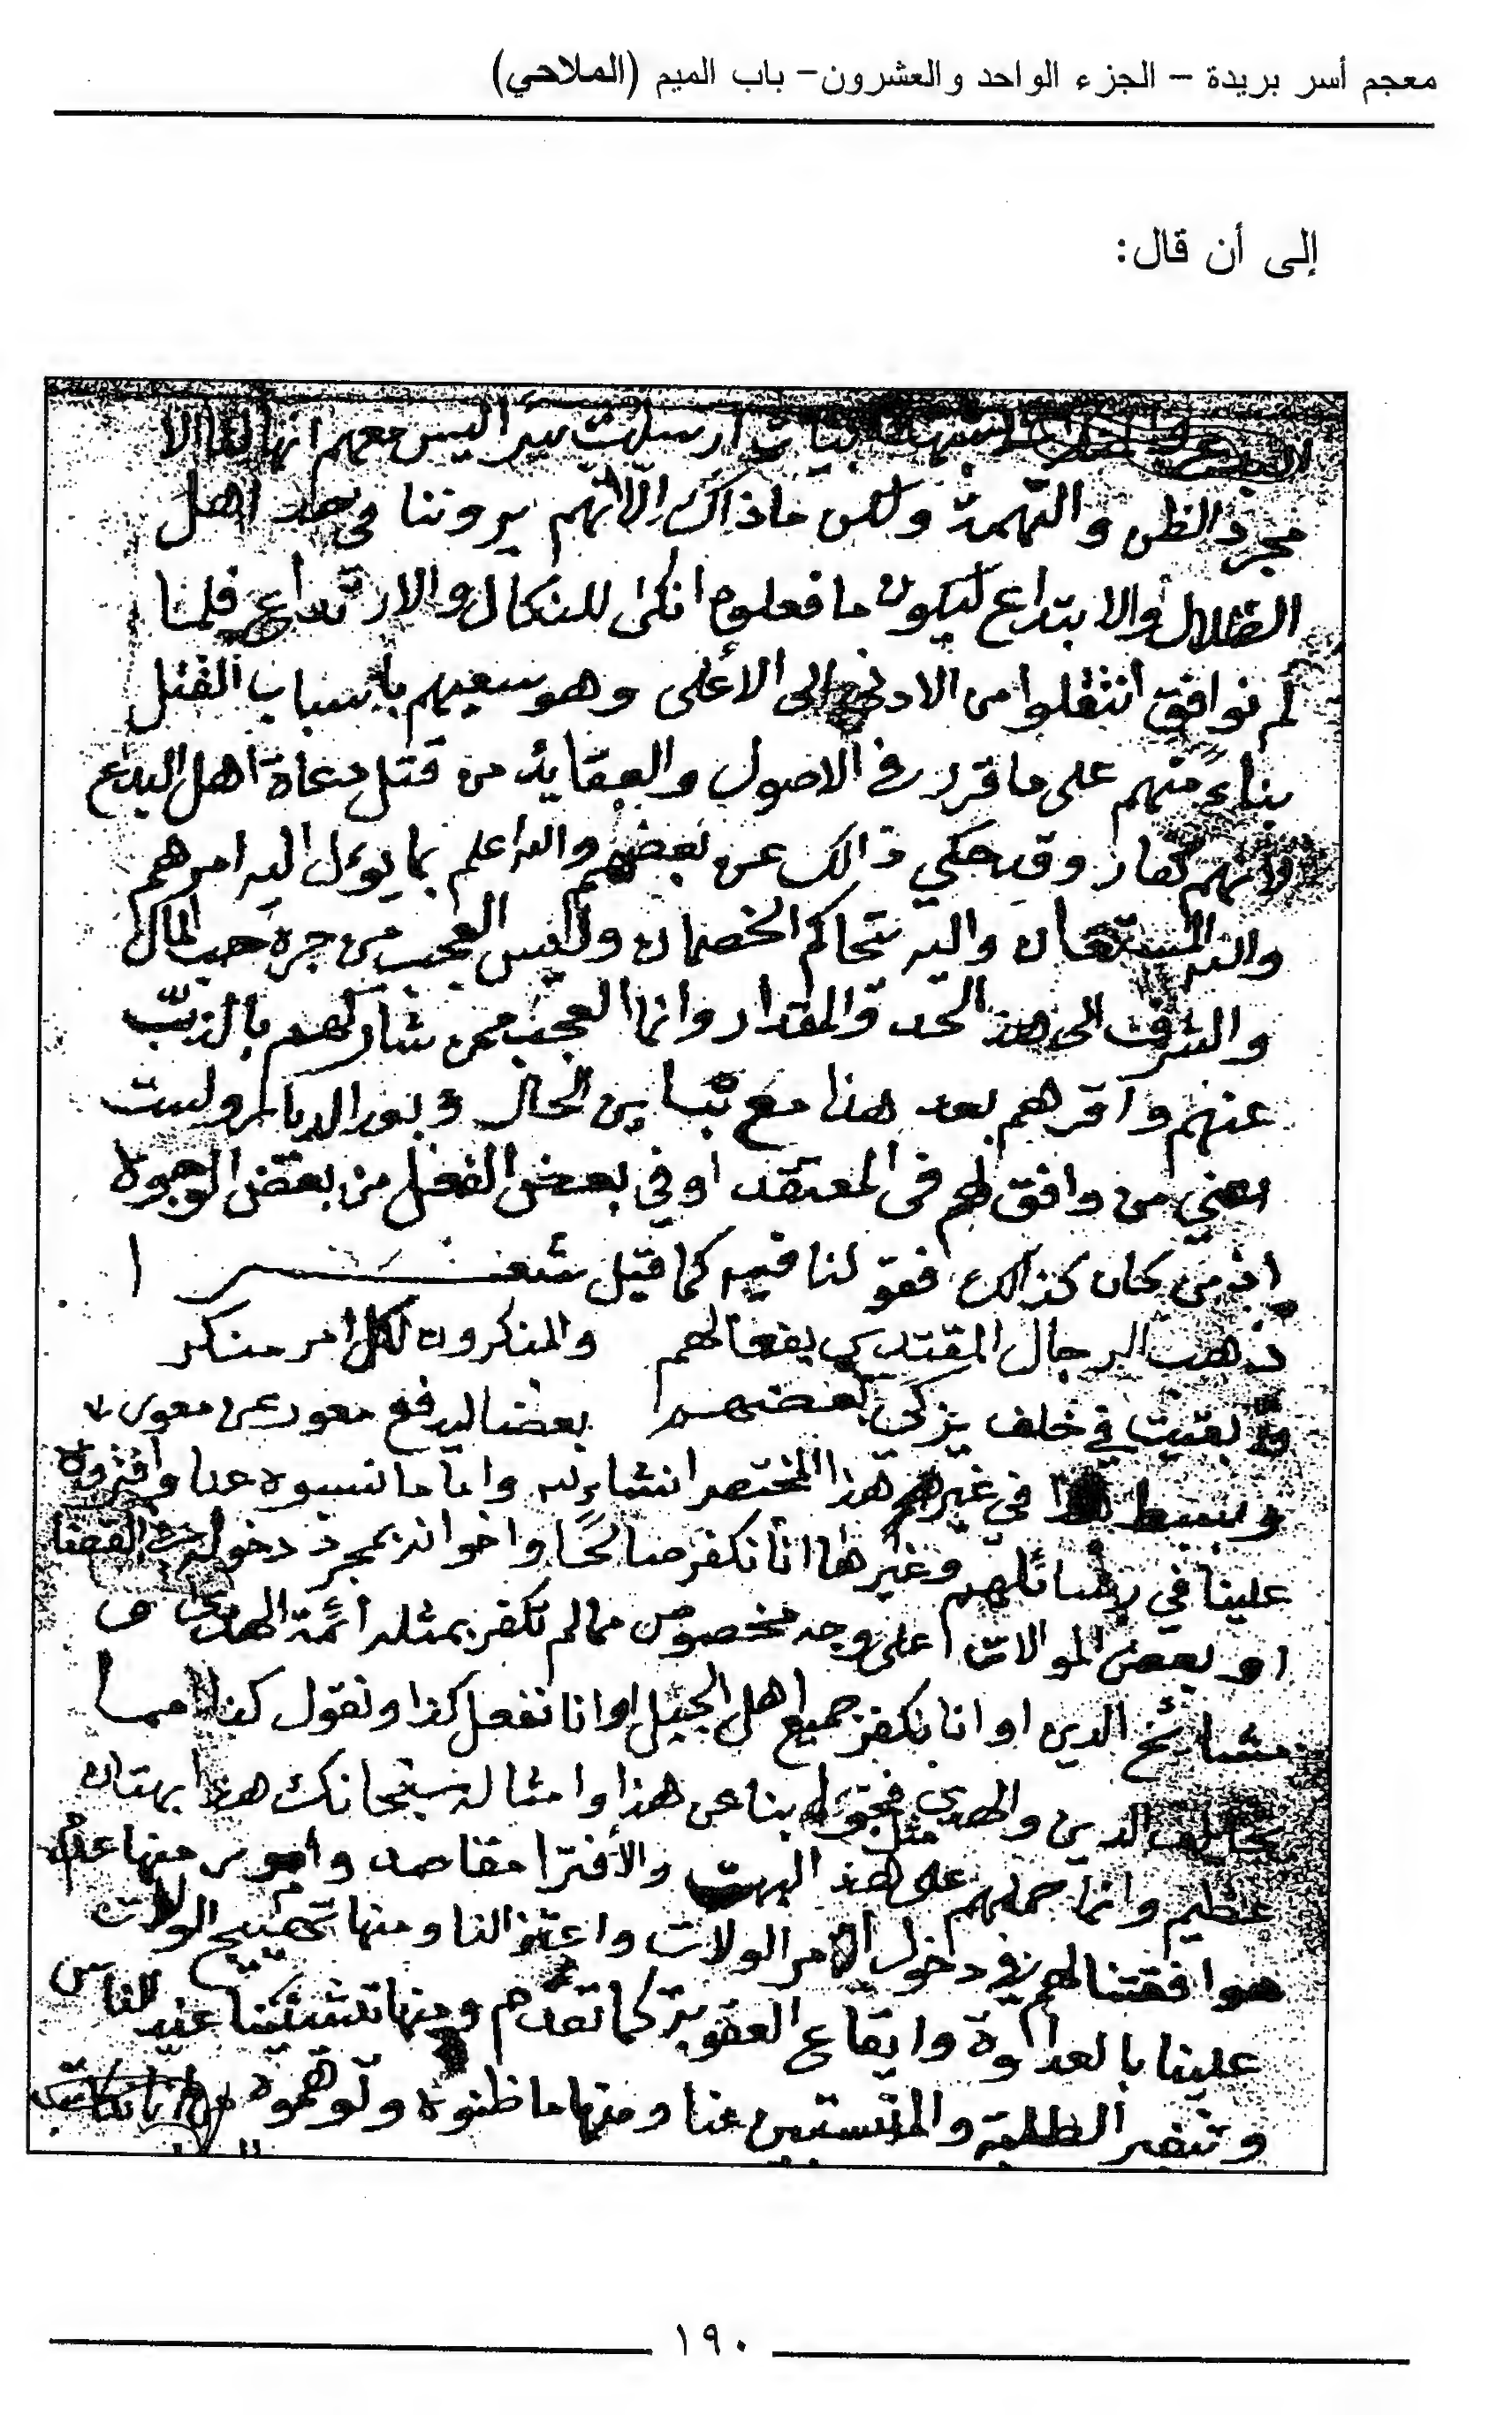 معجم أسر بريدة – الجزء الواحد والعشرون– باب الميم (الملاحي)
إلى أن قال:
ارسلت سرا ليس معهم
مجرد الظن والتهمة ولكن ماذاك إلا انهم يروننا في حد اهل
الضلال والابتداع ليكون ما فعلوه انكى للنكال والارتداع فلما
لم نوافق انتقلوا من الادنى الى الأعلى وهو سعيهم باسباب القتل
بناء منهم على ما قرر في الاصول والعقايد من قتل دعاة اهل البدع
وانهم كفار وقد حكي ذالك عن بعضهم والله اعلم بما يؤل اليه امرهم
والله المستعان واليه يتحاكم الخصمان وليس العجب من جره حب المال
والشرف الى هذ الحد والمقدار وانما العجب ممن شاركهم بالذب
عنهم واقرهم بعد هذا مع تباين الحال وبعد الديار ولست
اعني من وافق لهم في المعتقد او في بعض الفعل من بعض الوجوه
اذ من كان كذالك فقولنا فيه كما قيل شعر
ذهب الرجال المقتدى بفعالهم والمنكرون لكل امر منكر
وبقيت في خلف يزكي بعضهم بعضا ليدفع معور عن معور
وبسط هذا في غير هذا المختصر انشاء الله واما ما نسبوه عنا وافتروه
علينا في رسائلهم وغيرها انا نكفر صالحا واخوانه بمجرد دخوله في القضا
او بعض الموالات على وجه مخصوص مما لم تكفر بمثله أئمة الهدى و
مشائخ الدين او انا نكفر جميع اهل الجبل او انا نفعل كذا ونقول كذا مما
يخالف الدين والهدى فجوابنا عن هذا وامثاله سبحانك هذا بهتان
عظيم وانما حملهم على مثل هذ البهت والأفترا مقاصد وامور منها عدم
موافقتنا لهم في دخول الامر الولات واعتزالنا ومنها تهييج الولات
علينا بالعداوة وايقاع العقوبة كما تقدم ومنها عند الناس
وتنفير الطلبة والمنتسبين عنا ومنها ما ظنوه وتوهموه
١٩٠